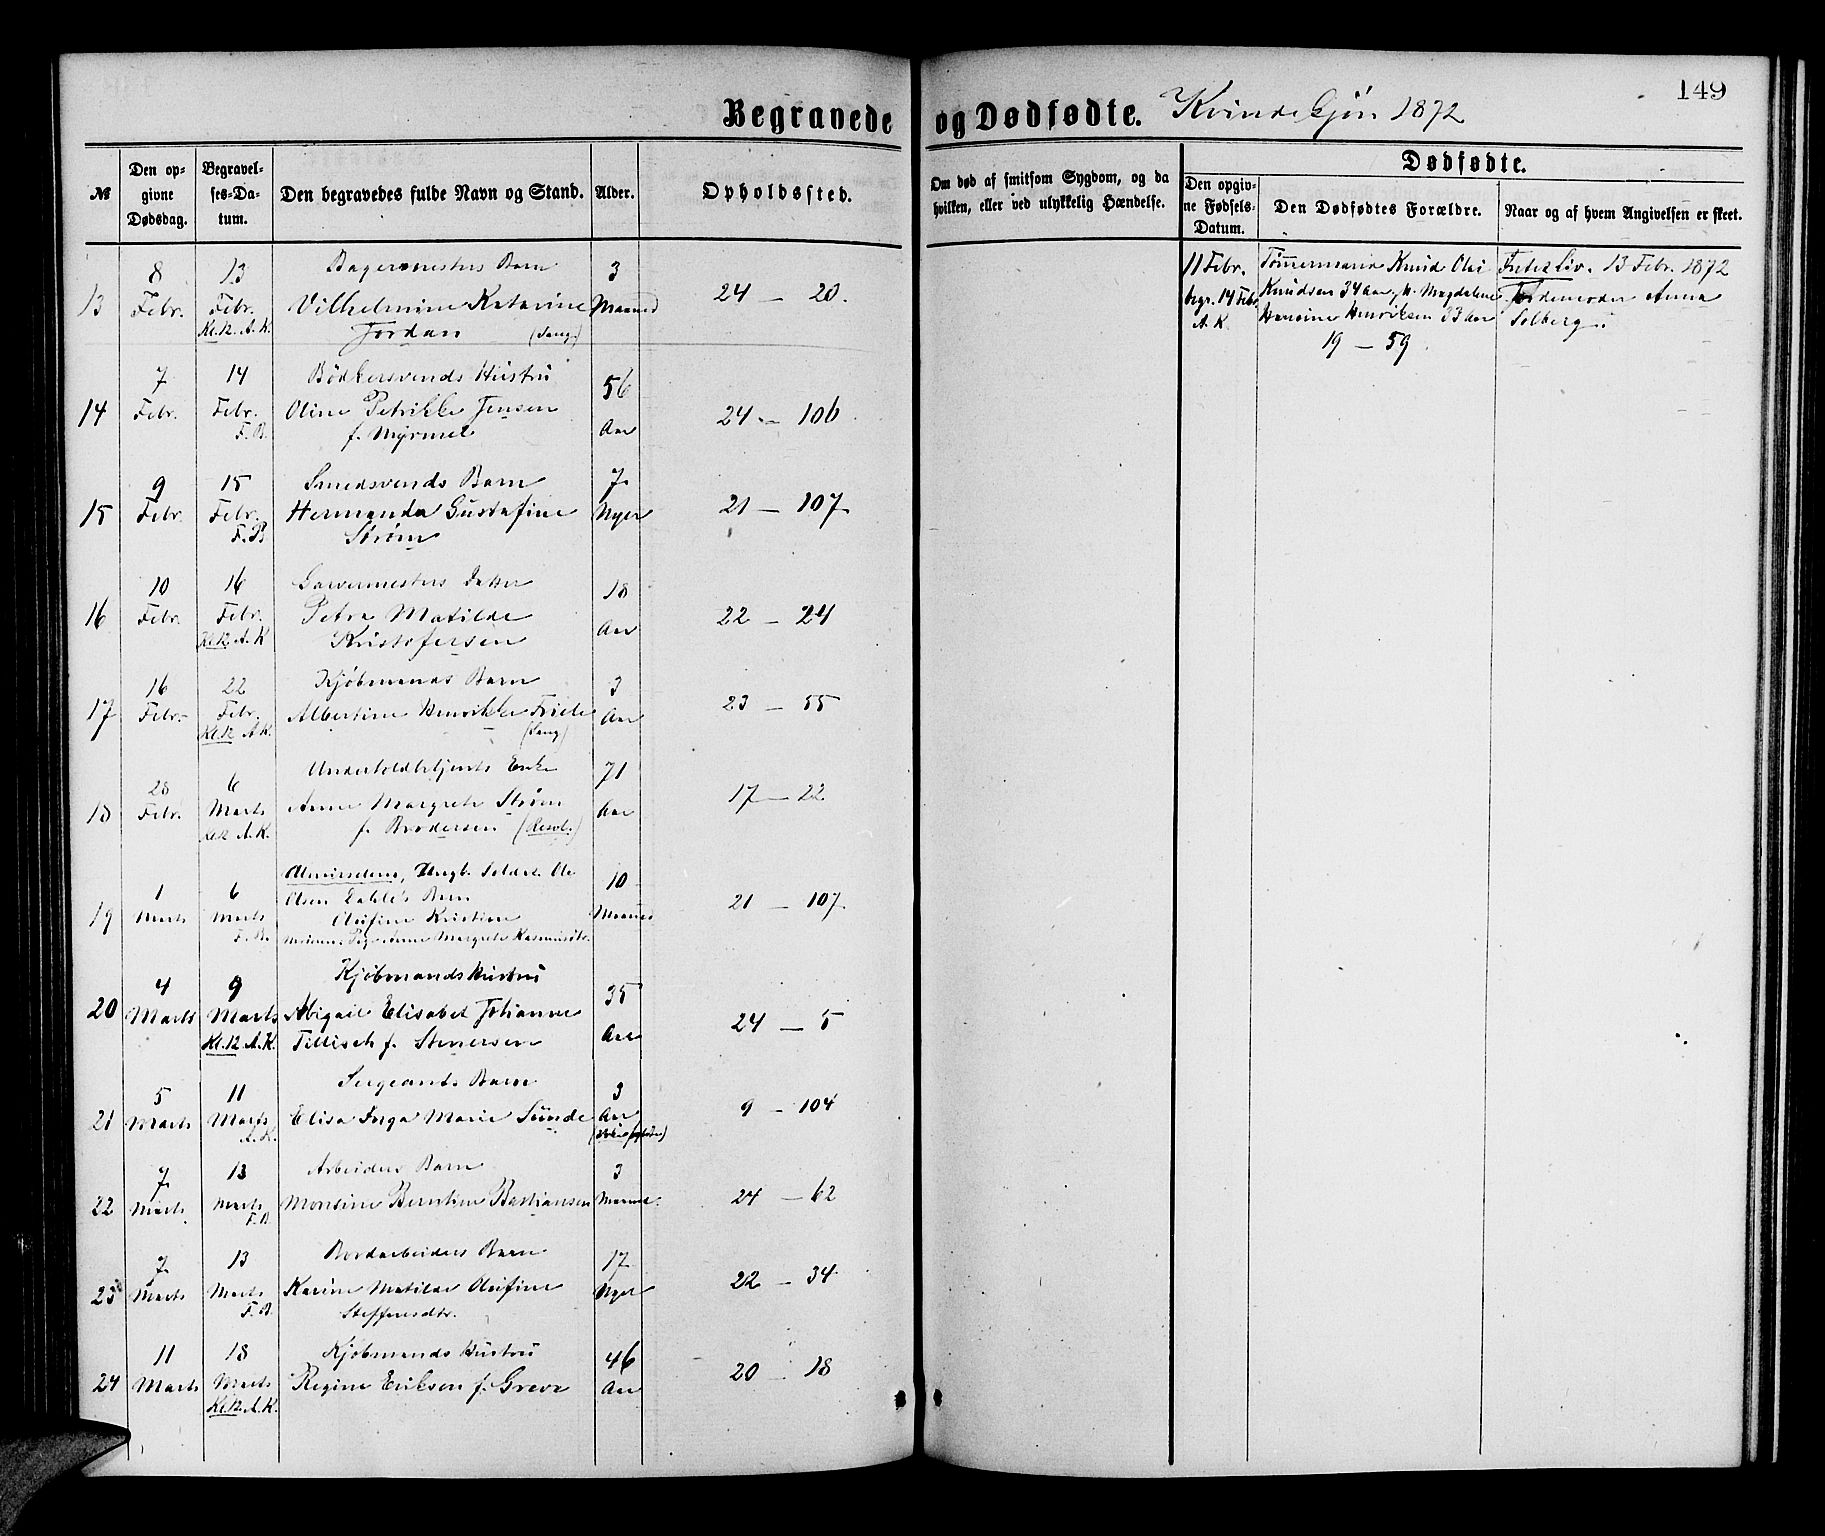 149
Begravede og Dødfødte. Kvindekjøn 1872
№
Den op-
givne
Dødsdag.
Begravel-
ses-Da-
tum.
Den begravedes fulde Navn og Stand.
Alder.
Opholdssted.
Om død af smitsom Sygdom, og da
hvilken, eller ved ulykkelig Hændelse.
Dødfødte.
Den opgiv-
ne Fødsels-
Datum.
Den Dødfødtes Forældre.
Naar og af hvem Angivelsen er skeet.
13
8
Febr.
13
Febr.
Kl.12. A.K.
Bagermesters Barn
Vilhelmine Katarine
Jordan (Sang)
3
Maaned
24 – 20.
11 Febr.
begr. 14 Febr.
A.K.
Tømmermand Knud Olai
Knudsen 34 Aar, H. Magdalene
Hansine Henriksen 33 Aar
19 – 59.
13 Febr. 1872
Jordemoder Anna
Solberg.
14
7
Febr.
14
Febr.
F.B.
Bødkersvends Hustru
Oline Petrikke Jensen
f. Myrmel
56
Aar
24 – 106
15
9
Febr.
15
Febr.
F.B
Smedsvends Barn
Hermanda Gustafine
Strøm
7
Uger
21 – 107.
16
10
Febr.
16
Febr.
Kl.12 A.K
Garvermesters Datter
Petra Matilde
Kristofersen
18
Aar
22 – 24
17
16
Febr.
22
Febr.
Kl.12 A.K.
Kjøbmands Barn
Albertine Henrikke Friele
(Sang)
3
Aar
23 – 55
18
28
Febr.
6
Marts
Kl.12 A.K.
Underholdbetjents Enke
Anne Margrete Strøm
f. Brodersen (Resol.)
71
Aar
17 – 22
19
1
Marts
6
Marts
F.B.
Ungk. Soldat Ole
Olsen Dahle's Barn
Olufine Kristine
Moderen Pige Anne Margrete Rasmusdtr.
10
Maaned
21 – 107.
20
4
Marts
9
Marts
Kl.12 A.K.
Kjøbmands Hustru
Abigael Elisabet Johanne
Tillisch f. Stenersen
35
Aar
24 – 5
21
5
Marts
11
Marts
A.K.
Sergeants Barn
Elisa Inga Marie Sunde
3
Aar
9 – 104
22
7
Marts
13
Marts
F.B.
Arbeiders Barn
Monsine Berntine Bastiansen
3
Maaned.
24 – 62
23
7
Marts
13
Marts
F.B.
Bordarbeiders Barn
Karine Matilde Olufine
Steffensdtr.
17
Uger
22 – 34
24
11
Marts
18
Marts
Kl.12. A.K.
Kjøbmands Hustru
Regine Erikson f. Greve
46
Aar
20 – 18